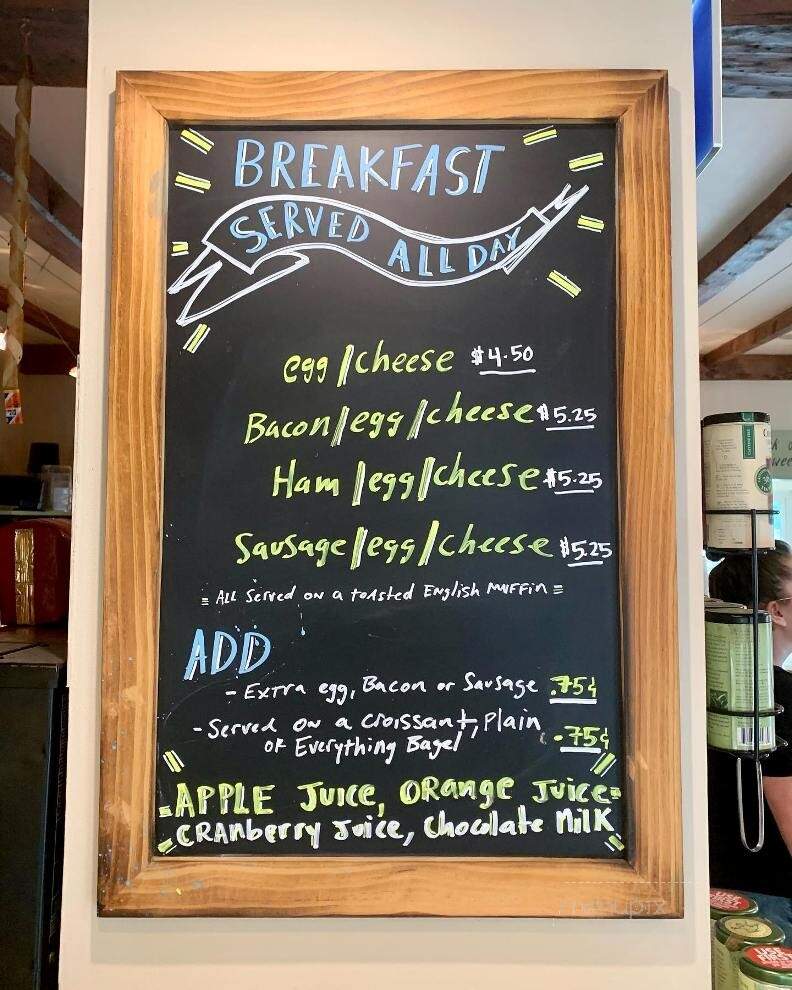 BREAKFAST
SERVED ALL DAY
egg/cheese $4.50
Bacon/egg/cheese $5.25
Ham/egg/cheese $5.25
Sausage/egg/cheese $5.25
All Served on a toasted English Muffin
ADD
- Extra egg, Bacon or Sausage .75¢
- Served on a croissant, Plain
or Everything Bagel .75¢
APPLE Juice, Orange Juice
CRANberry Juice, Chocolate Milk
USE FIRST
USE FIRST